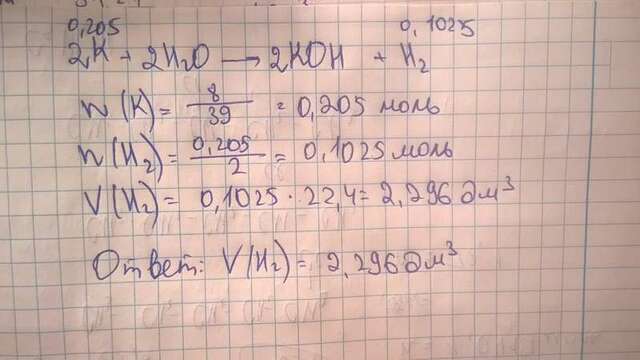 0,205 0,1025
2K + 2H₂O → 2KOH + H₂
n(K) = 8/39 = 0,205 моль
n(H₂) = 0,205/2 = 0,1025 моль
V(H₂) = 0,1025 · 22,4 = 2,296 дм³
Ответ: V(H₂) = 2,296 дм³